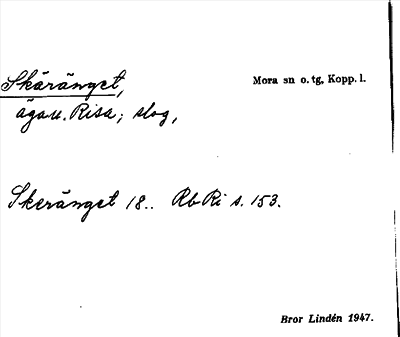 Skäränget,
Mora sn o. tg, Kopp. l.
äga u. Risa; slog,
Skeränget 18.. Rb Ri s. 153.
Bror Lindén 1947.